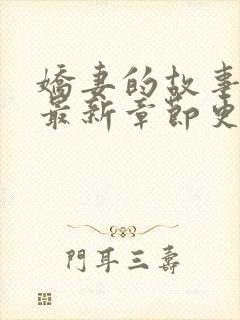 嬌妻的故事
最新章節更
門耳三壽